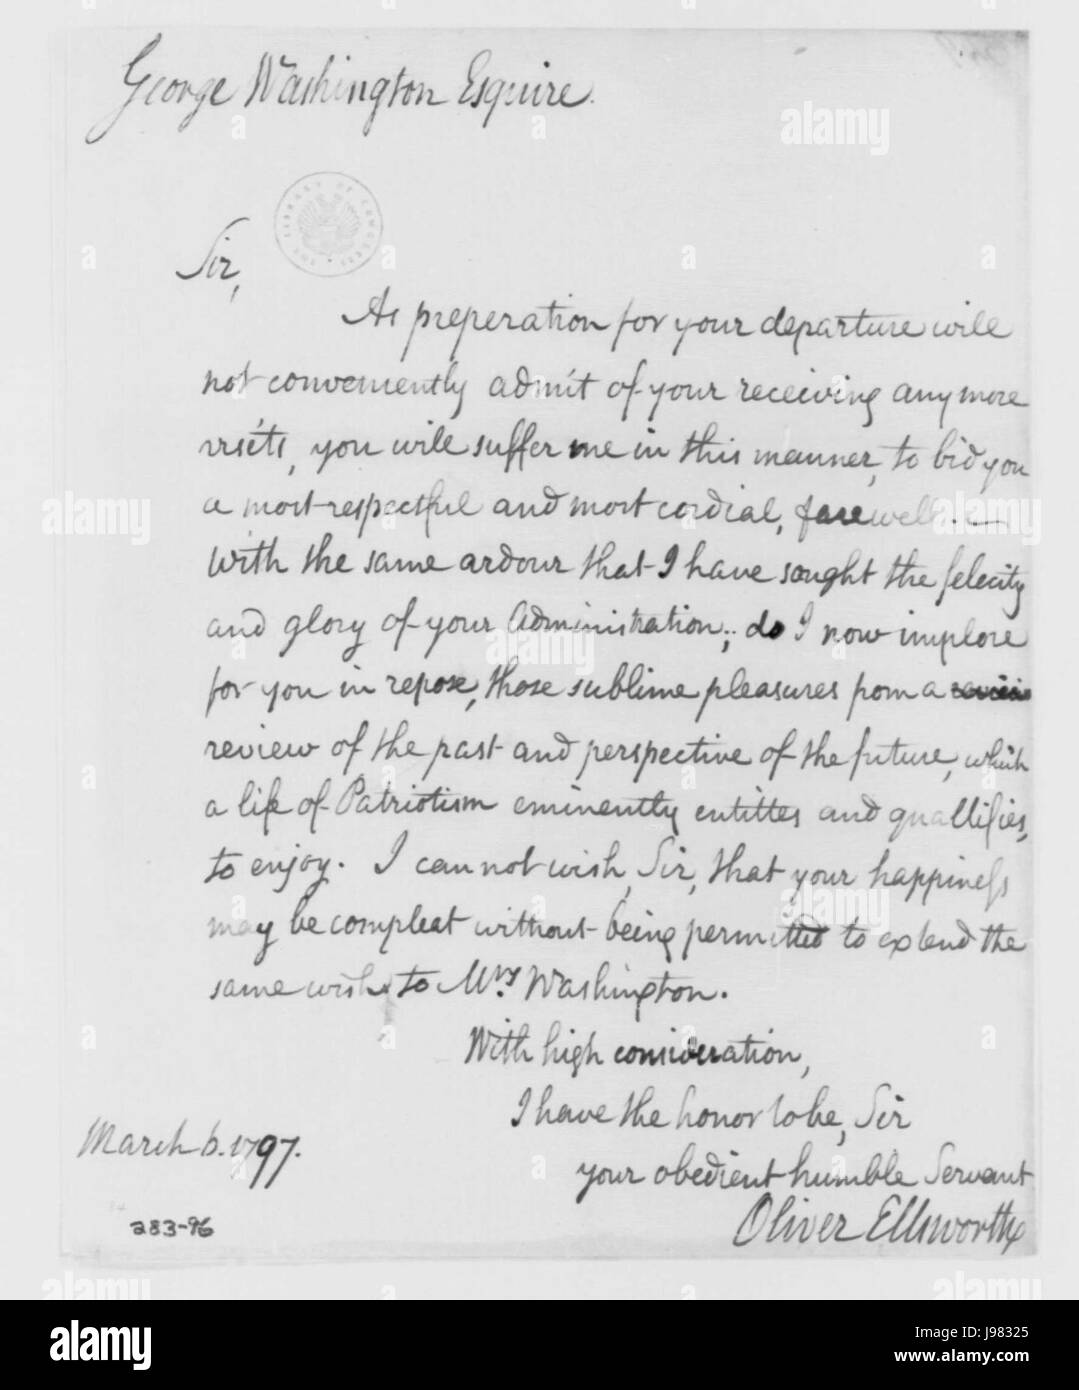 George Washington Esquire.
THE LIBRARY OF CONGRESS
Sir,
As preperation for your departure will
not conveniently admit of your receiving any more
visits, you will suffer me in this manner, to bid you
a most respectful and most cordial, farewell. —
With the same ardour that I have sought the felicity
and glory of your Administration; do I now implore
for you in repose, those sublime pleasures from a
review of the past and perspective of the future, which
a life of Patriotism eminently entitles and quallifies,
to enjoy. I can not wish, Sir, that your happiness
may be compleat without being permitted to extend the
same wish to Mrs. Washington.
With high consideration,
I have the honor to be, Sir
your obedient humble Servant
Oliver Ellsworth
March 6. 1797.
283-96
alamy
Image ID: J98325
www.alamy.com